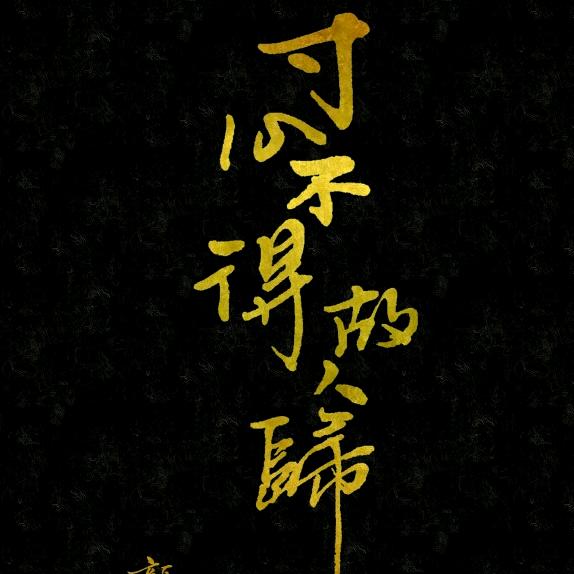 寸心不得故人歸